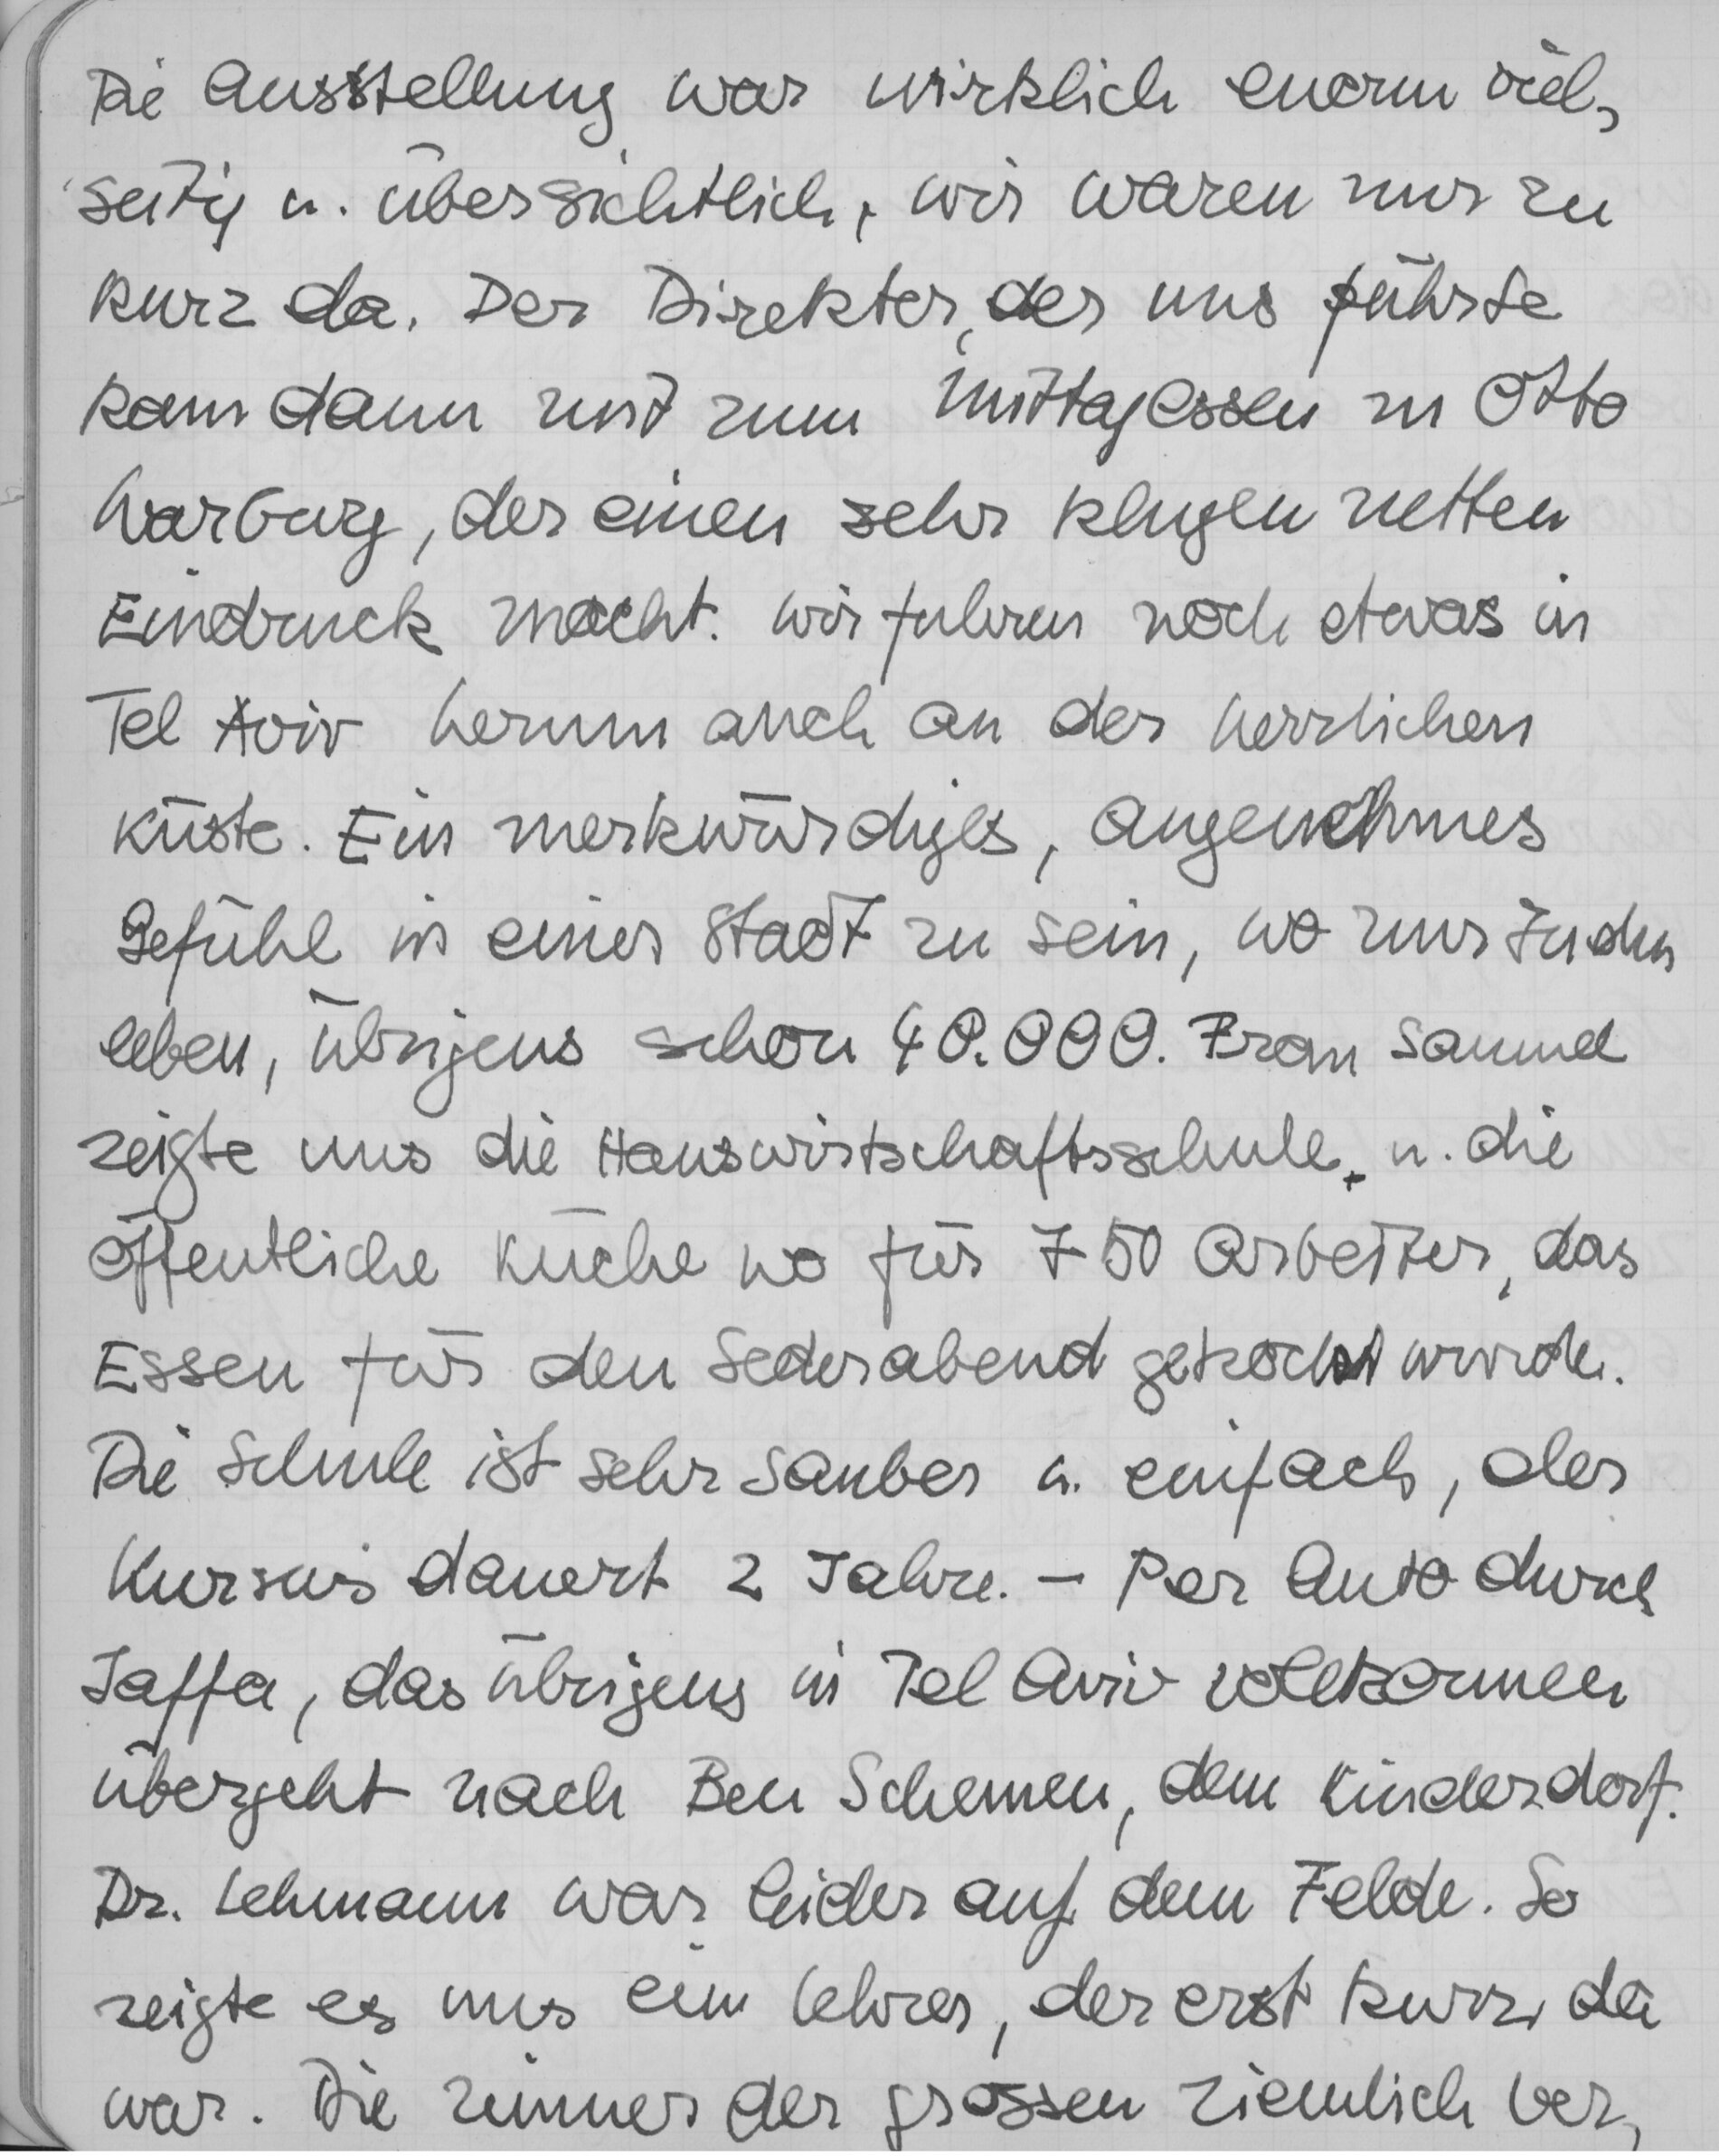 Die Ausstellung war wirklich enorm viel-
seitig u. übersichtlich, wir waren nur zu
kurz da. Der Direktor, der uns führte
kam dann mit zum Mittagessen zu Otto
Warburg, der einen sehr klugen netten
Eindruck macht. Wir fuhren noch etwas in
Tel Aviv herum auch an der herrlichen
Küste. Ein merkwürdiges, angenehmes
Gefühl in einer Stadt zu sein, wo nur Juden
leben, übrigens schon 40.000. Frau Samuel
zeigte uns die Hauswirtschaftsschule, u. die
öffentliche Küche wo für 750 Arbeiter, das
Essen für den Sederabend gekocht wurde.
Die Schule ist sehr sauber u. einfach, der
Kursus dauert 2 Jahre. – Per Auto durch
Jaffa, das übrigens in Tel Aviv vollkommen
übergeht nach Ben Schemen, dem Kinderdorf.
Dr. Lehmann war leider auf dem Felde. So
zeigte es uns ein Lehrer, der erst kurz da
war. Die Zimmer der grossen ziemlich ver-